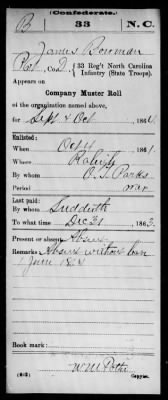 (Confederate.)
B 33 N.C.
James Bowman
Pvt, Co. D, 33 Reg't North Carolina
Infantry (State Troops).
Appears on
Company Muster Roll
of the organization named above,
for Sept & Oct, 1864.
Enlisted:
When Oct 4, 1861.
Where Raleigh
By whom O. J. Parks
Period war
Last paid:
By whom Sudderth
To what time Dec 31, 1863.
Present or absent Absent
Remarks: Absent without leave
June 1864
Book mark:
(642) Copyist.